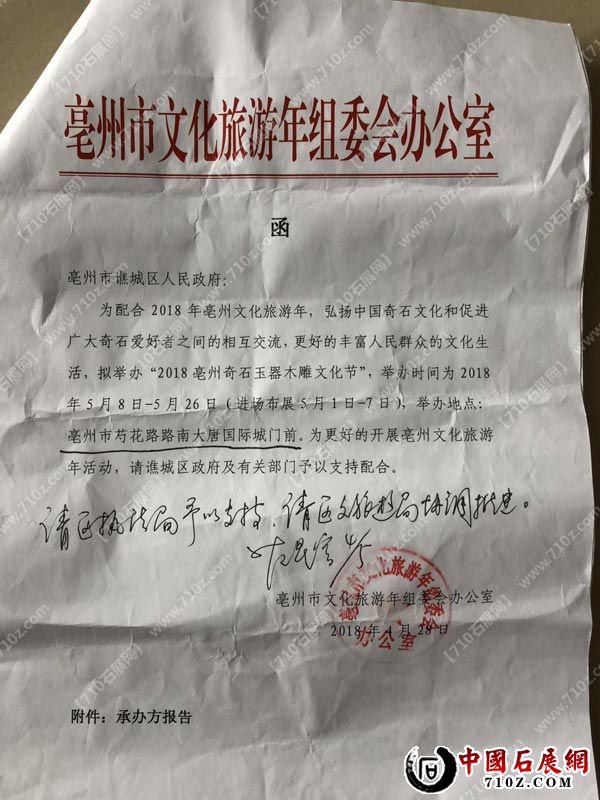 亳州市文化旅游年组委会办公室
函
亳州市谯城区人民政府:
为配合 2018 年亳州文化旅游年，弘扬中国奇石文化和促进
广大奇石爱好者之间的相互交流，更好的丰富人民群众的文化生
活，拟举办“2018 亳州奇石玉器木雕文化节”，举办时间为 2018
年 5 月 8 日-5 月 26 日（进场布展 5 月 1 日-7 日），举办地点:
亳州市芍花路路南大唐国际城门前。为更好的开展亳州文化旅游
年活动，请谯城区政府及有关部门予以支持配合。
请区执法局予以支持，请区文旅局协调推进。
亳州市文化旅游年组委会办公室
2018 年 4 月 28 日
亳州市文化旅游年组委会
办公室
附件：承办方报告
中國石展網
710z.com
【710石展网】
www.710z.com